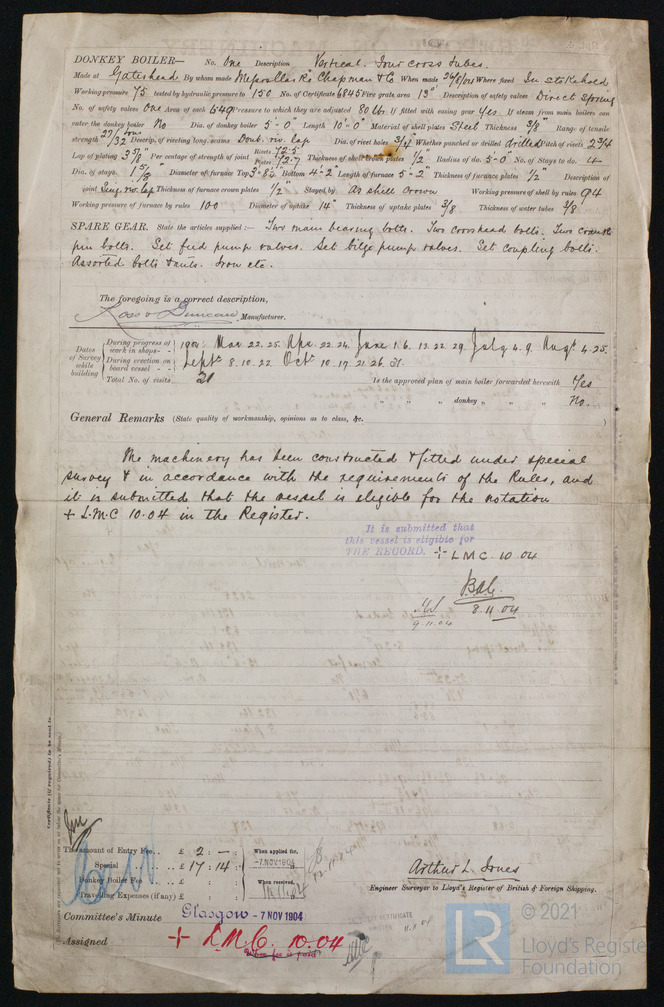 DONKEY BOILER— No. One Description Vertical. Four cross tubes.
Made at Gateshead By whom made Messrs Clarke Chapman & Co When made 26/8/04 Where fixed In Stokehold
Working pressure 75 tested by hydraulic pressure to 150 No. of Certificate 6845 Fire grate area 19" Description of safety valves Direct Spring
No. of safety valves One Area of each 5.49" Pressure to which they are adjusted 80 lbs If fitted with easing gear Yes If steam from main boilers can
enter the donkey boiler No Dia. of donkey boiler 5'-0" Length 10'-0" Material of shell plates Steel Thickness 3/8 Range of tensile
strength 27/32 tons Descrip. of riveting long. seams Doub. riv. lap Dia. of rivet holes 3/4" Whether punched or drilled drilled Pitch of rivets 2 3/4
Lap of plating 3 5/8" Per centage of strength of joint Rivets 72.5 Plates 72.7 Thickness of shell crown plates 1/2" Radius of do. 5-0" No. of Stays to do. 4
Dia. of stays. 1 5/8" Diameter of furnace Top 3'-8 1/2" Bottom 4-2 Length of furnace 5-2" Thickness of furnace plates 1/2" Description of
joint Sing. riv. lap Thickness of furnace crown plates 1/2" Stayed by As shell crown Working pressure of shell by rules 94
Working pressure of furnace by rules 100 Diameter of uptake 14" Thickness of uptake plates 3/8 Thickness of water tubes 3/8
SPARE GEAR. State the articles supplied:— Two main bearing bolts. Two crosshead bolts. Two crank
pin bolts. Set feed pump valves. Set bilge pump valves. Set coupling bolts.
Assorted bolts & nuts. Iron etc.
The foregoing is a correct description,
Ross & Duncan Manufacturer.
Dates of Survey while building
During progress of work in shops - - 1904: Mar 22. 25. Apr. 22. 24. June 1. 6. 13. 22. 29. July 4. 9. Augt 4. 25.
During erection on board vessel - - Septr 8. 10. 22. Octr 10. 17. 21. 26. 31.
Total No. of visits 21 Is the approved plan of main boiler forwarded herewith Yes
" " " donkey " " " No.
General Remarks (State quality of workmanship, opinions as to class, &c. )
The machinery has been constructed & fitted under special
survey & in accordance with the requirements of the Rules, and
it is submitted that the vessel is eligible for the notation
+ L.M.C 10.04 in the Register.
It is submitted that
this vessel is eligible for
THE RECORD. + LMC. 10.04
8.11.04
9.11.04
The amount of Entry Fee.. £ 2 : – : When applied for,
Special £ 17 : 14 : -7.NOV.1904
Donkey Boiler Fee £ When received,
Travelling Expenses (if any) £
Arthur L. Jones
Engineer Surveyor to Lloyd's Register of British & Foreign Shipping.
Committee's Minute Glasgow - 7 NOV 1904
Assigned + L.M.C. 10.04
When fee is paid
© 2021
LR Lloyd's Register
Foundation